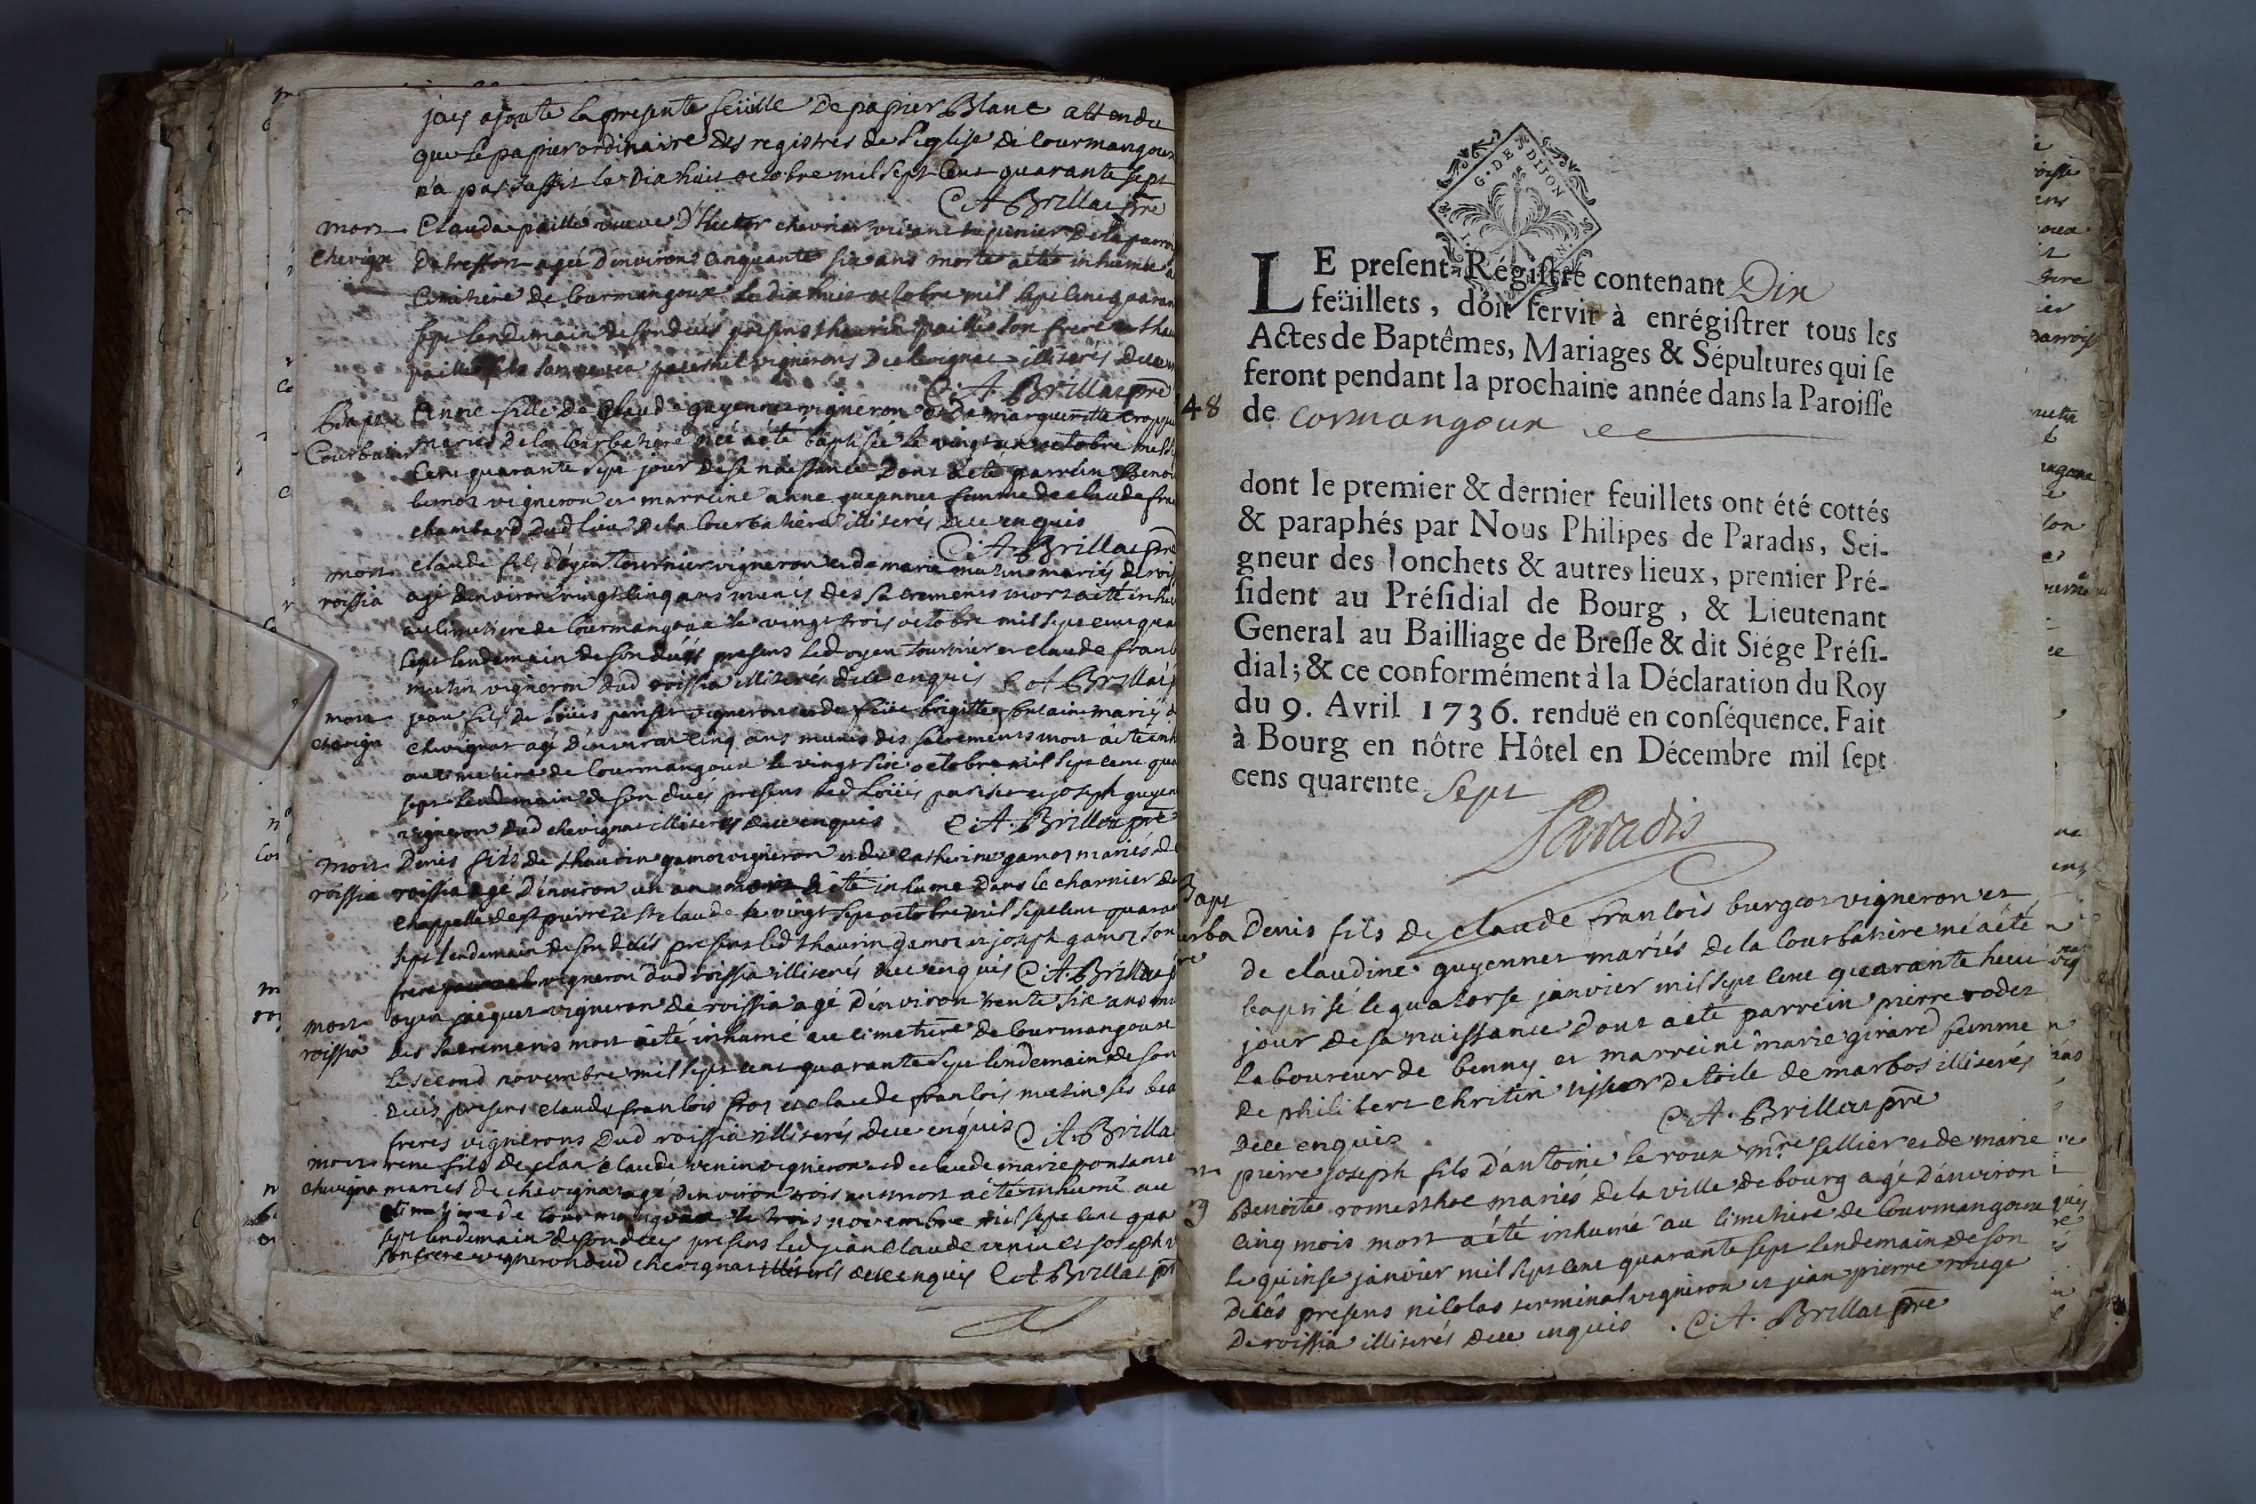 jais ajouté la presente feüille De papier Blanc attendu
que le papier ordinaire des registres de l'eglise de Courmangoux
n'a pas suffit le Dix huit octobre mil sept Cent quarante sept
C A Brillat pre
mort
chevigna
Clauda paillé veuve D'Hector chevrier vivant
De treffort agée D'environ Cinquante six ans morte a été inhumée a
Cimitiere de Courmangoux le dix huit octobre mil sept cent quaran
sept lendemain de son deces presens thaurin paillé son frere et
vignerons De chevignat illiterés de ce
C. A. Brillat pre
Bapt
Courbatier
Anne fille de Claude guyennet vigneron & De margueritte
mariés de la Courbatiere née a été baptisée le vingt un octobre mil s
Cent quarante sept jour de sa naissance Dont a été parrein Beno
vigneron et marreine anne guyennet femme de claude fra
chambard Dud lieu De la Courbatiere illiterés de ce enquis
C. A. Brillat pre
mort
roissia
claude fils d'oyen tournier vigneron et de marie mutin mariés de rois
agé d'environ vingt cinq ans munis des sacremens mort a été inhu
au cimetiere de Courmangoux le vingt trois octobre mil sept cent qua
sept lendemain de son deces presens led oyen tournier et claude franc
mutin vigneron dud roissia illiterés de ce enquis C A Brillat p
mort
chevign
jean fils de Loüis periset vigneron et de feüe brigitte fontaine mariés d
chevignat agé d'environ cinq ans munis des sacremens mort a été inh
au cimetiere de Courmangoux le vingt six octobre mil sept cent qua
sept lendemain de son deces presens led Loüis periset et joseph guyen
vigneron dud chevignat illiterés de ce enquis C. A. Brillat pre
mort
roissia
Denis fils de thaurin gamot vigneron et de catherine gamot mariés de
roissia agé d'environ un an mort a été inhumé Dans le charnier de
chappelle de st pierre et st claude le vingt sept octobre mil sept cent quaran
sept lendemain de son deces presens led thaurin gamot et joseph gamot son
frere vigneron dud roissia illiterés de ce enquis C. A. Brillat p
mort
roissia
oyen jacquet vigneron de roissia agé d'environ trente six ans mu
des sacremens mort a été inhumé au cimetiere de Courmangoux
le second novembre mil sept cent quarante sept lendemain de son
deces presens claude francois froz et claude francois mutin ses bea
freres vignerons Dud roissia illiterés de ce enquis C. A. Brilla
mort
chevigna
rene fils de jean claude venin vigneron et de claude marie fontaine
mariés de chevignat agé d'environ trois ans mort a été inhumé au
cimetiere de courmangoux le trois novembre mil sept cent qua
sept lendemain de son deces presens led jean claude venin et joseph v
son frere vigneron dud chevignat illiterés de ce enquis C A Brillat pr
G. DE DIJON
48
LE present Régistre contenant Dix
feüillets, doit servir à enrégistrer tous les
Actes de Baptêmes, Mariages & Sépultures qui se
feront pendant la prochaine année dans la Paroisse
de Cormangoux
dont le premier & dernier feuillets ont été cottés
& paraphés par Nous Philipes de Paradis, Sei-
gneur des Jonchets & autres lieux, premier Pré-
sident au Présidial de Bourg, & Lieutenant
General au Bailliage de Bresse & dit Siége Prési-
dial; & ce conformément à la Déclaration du Roy
du 9. Avril 1736. renduë en conséquence. Fait
à Bourg en nôtre Hôtel en Décembre mil sept
cens quarente Sept
Paradis
Bapt
urba
Denis fils de claude francois burgoz vigneron et
de claudine guyennet mariés de la Courbatiere né a été
baptisé le quatorse janvier mil sept cent quarante huit
jour de sa naissance Dont a été parrein pierre rodet
laboureur de benny et marreine marie girard femme
de philibert chritin tisseur de toile de marbos illiterés
de ce enquis C. A. Brillat pre
pierre joseph fils d'antoine le roux mre sellier et de marie
Benoite romesthoc mariés de la ville de bourg agé d'environ
cinq mois mort a été inhumé au cimetiere de Courmangoux
le quinse janvier mil sept cent quarante sept lendemain de son
deces presens nicolas terminal vigneron et jean pierre rouge
De roissia illiterés de ce enquis. C. A. Brillat pre